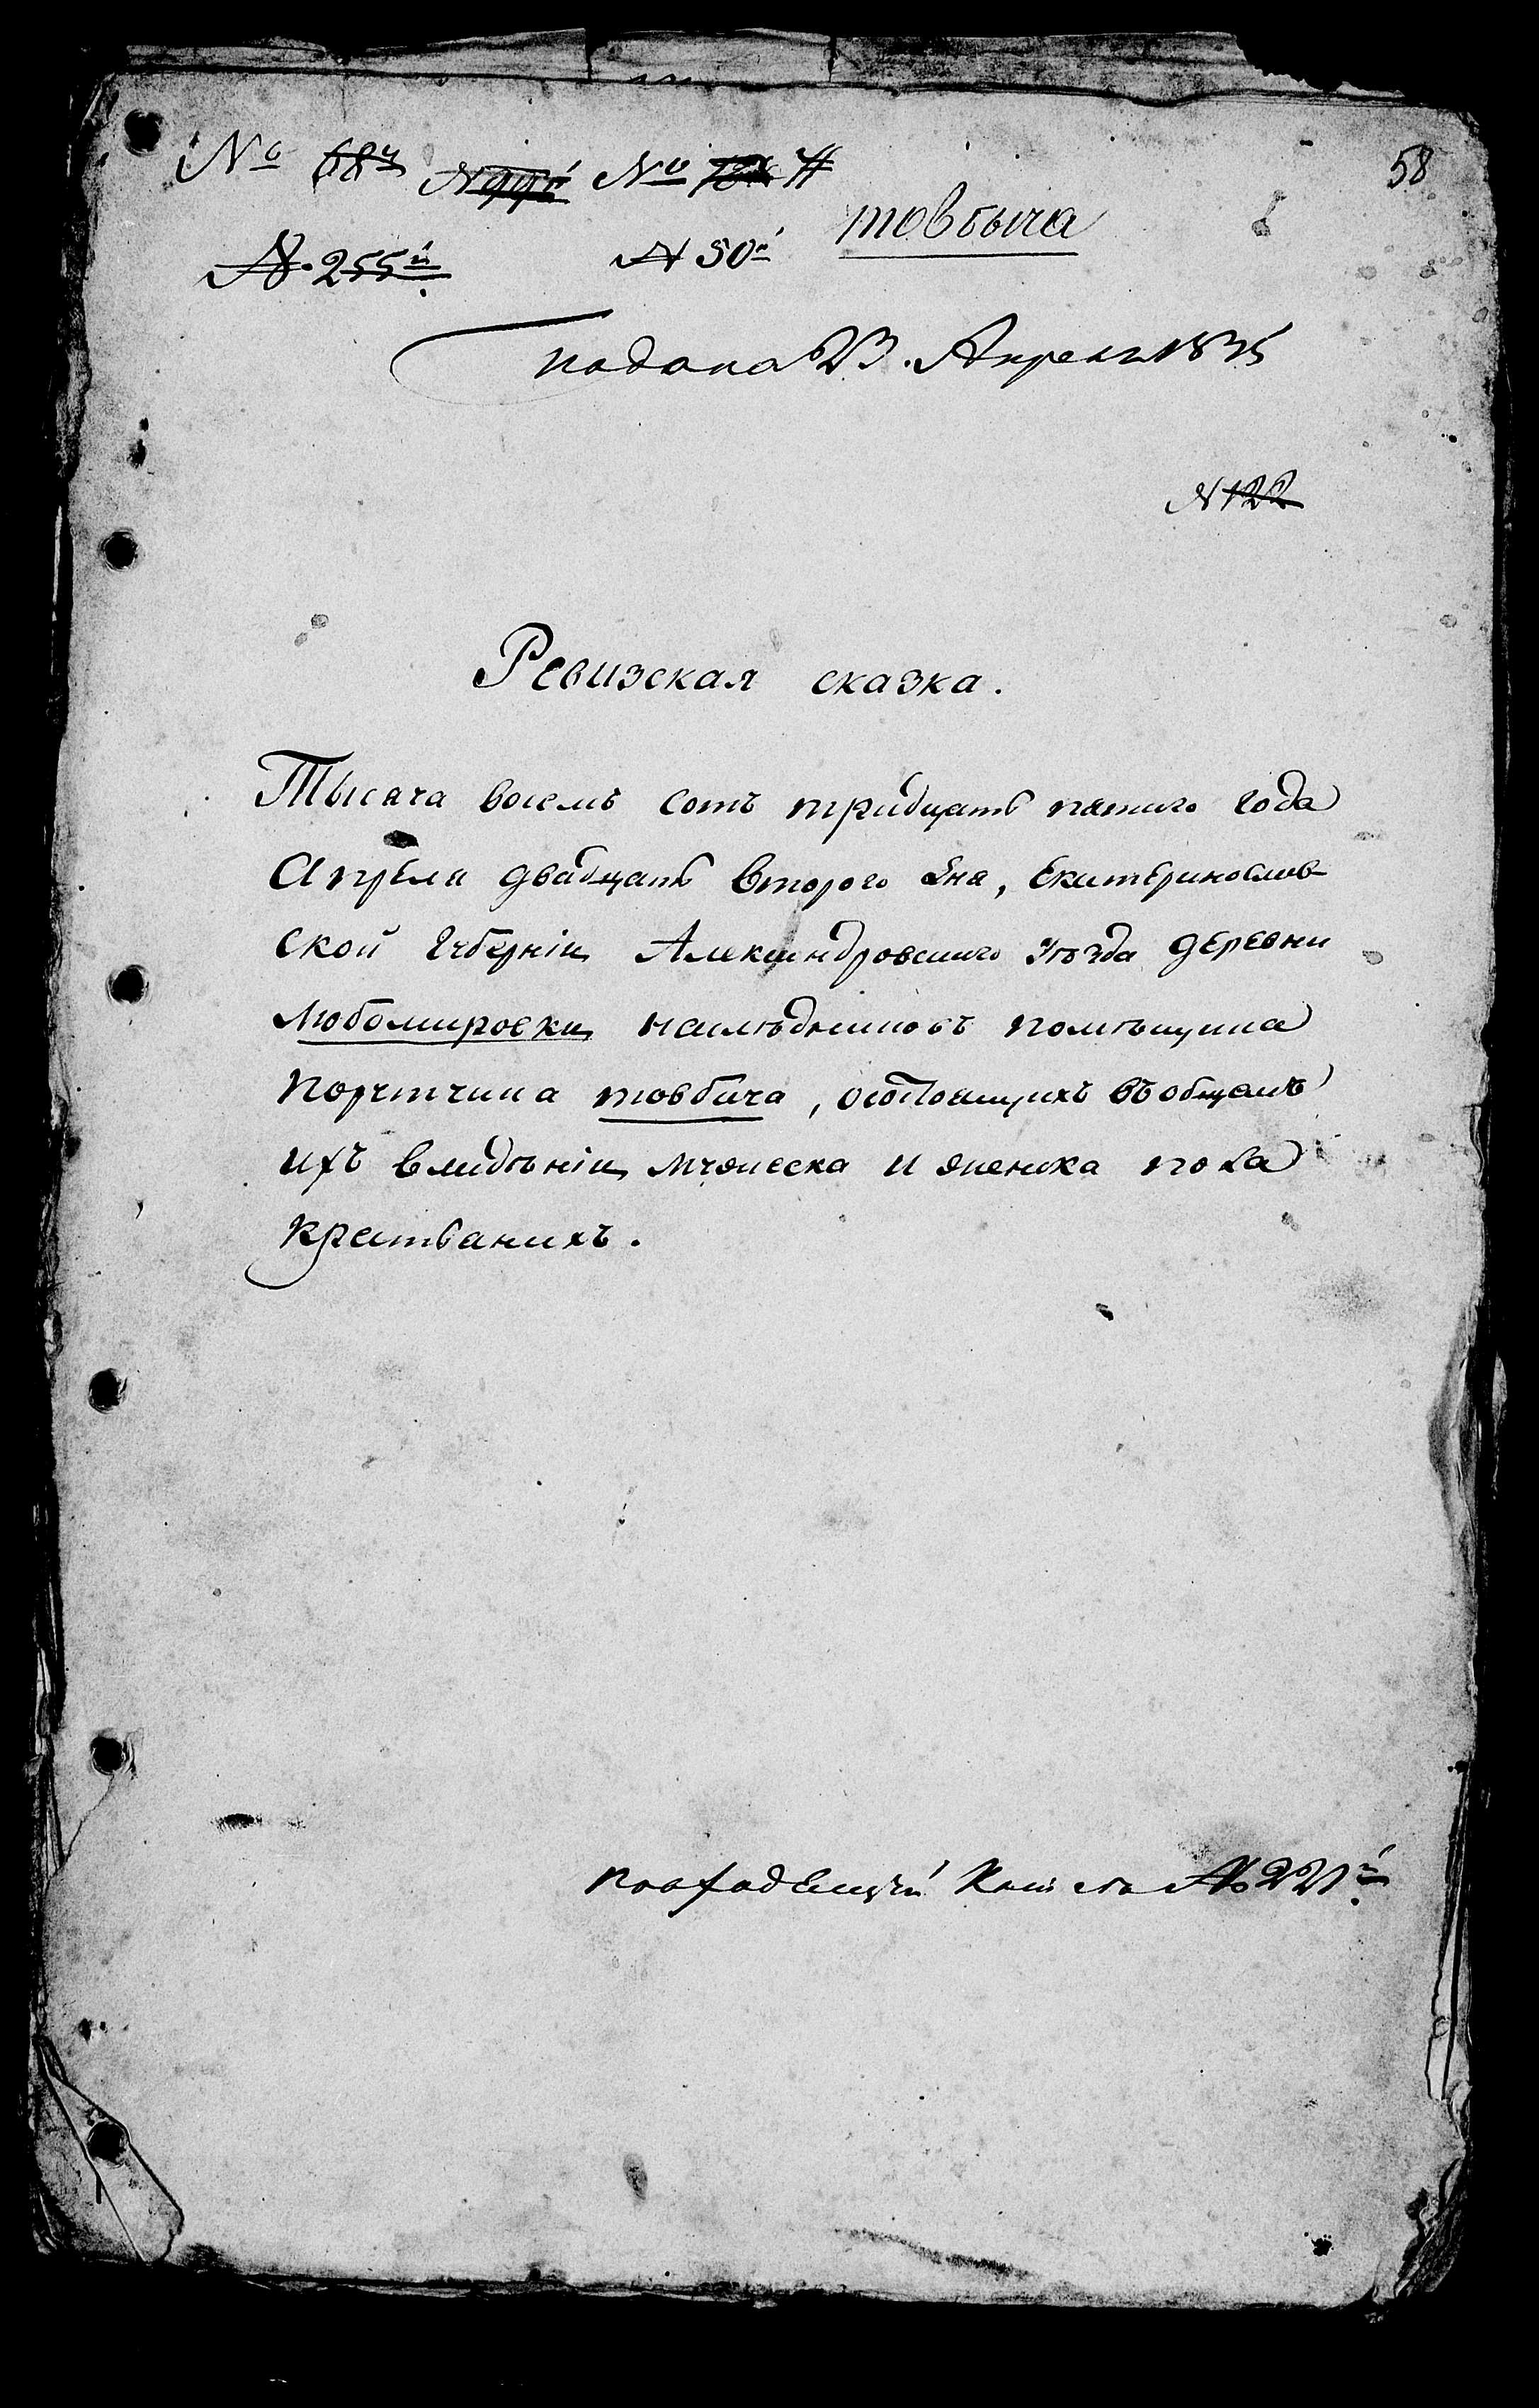 58
№ 687
товбыча
N. 255й
N 50й
подана 23. Апреля 1835
N 122
Ревизская сказка.
Тысяча восемь сотъ тридцать пятого года
Апреля двадцать второго дна, Екатеринослав-
ской Губерніи Александровскаго уѣзда деревни
Любомировки наследниковъ помѣщика
Порутчика товбича, состоящихъ въ общемъ
ихъ владѣніи мужеска и женска пола
крестьянахъ.